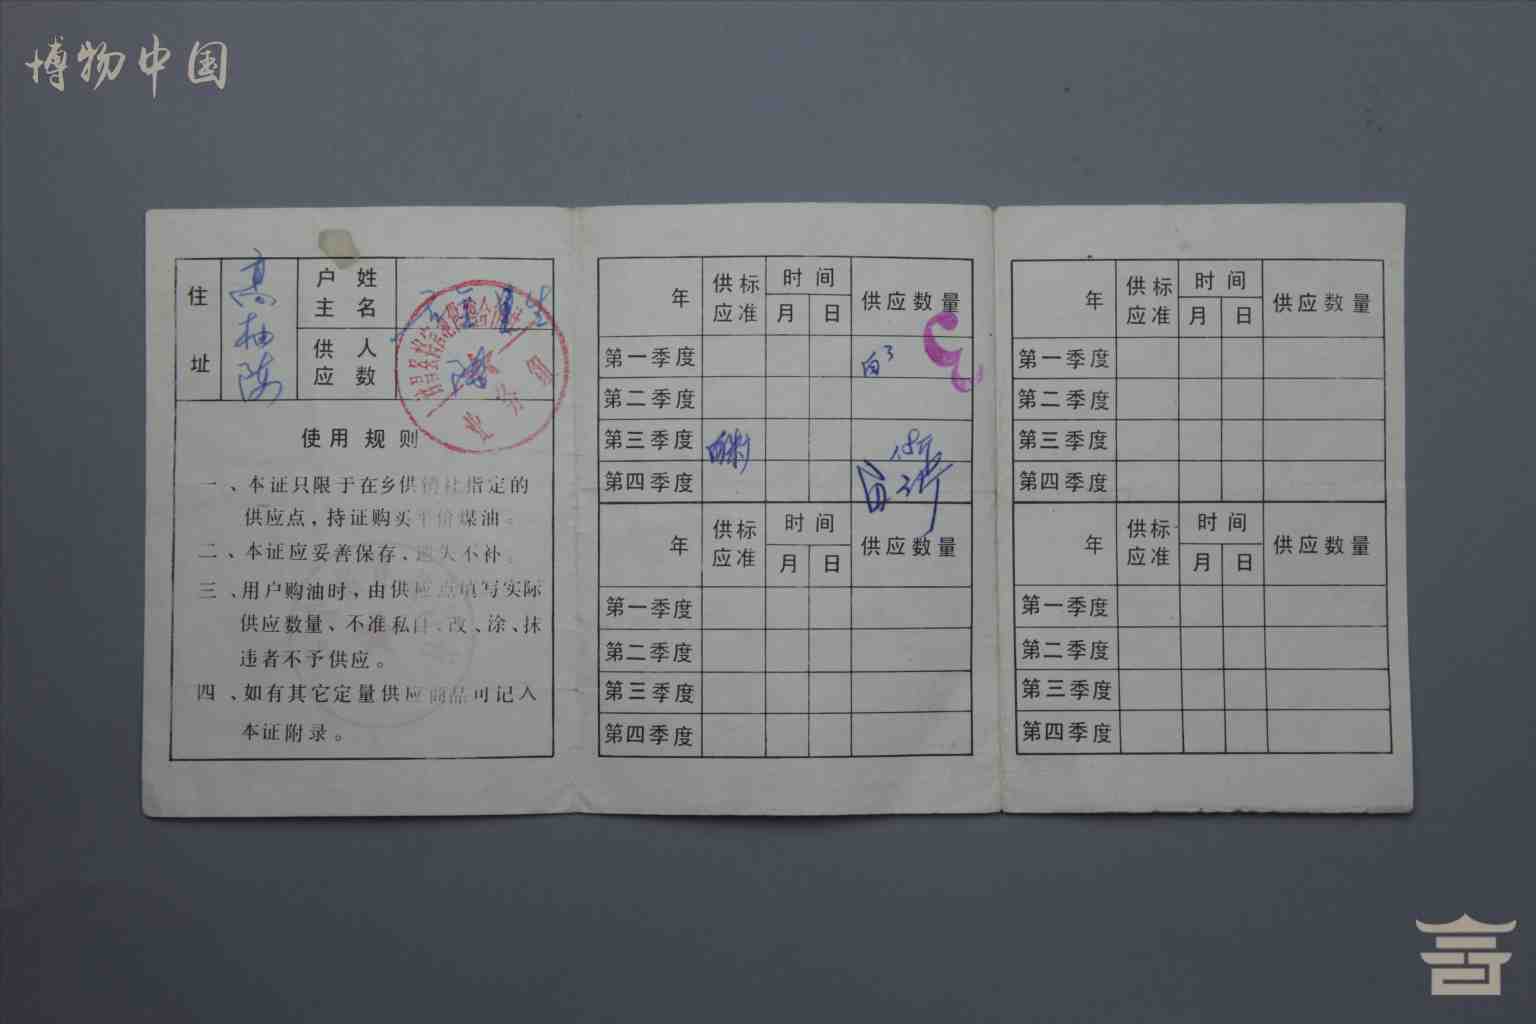 博物中国
住址
高
柚
户姓
主名
供人
应数
使用规则
一、本证只限于在乡供销社指定的
供应点，持证购买平价煤油。
二、本证应妥善保存、遗失不补。
三、用户购油时，由供应点填写实际
供应数量、不准私自、改、涂、抹
违者不予供应。
四、如有其它定量供应商品可记入
本证附录。
年 供应标准 时间 月 日 供应数量
第一季度
第二季度
第三季度
第四季度
年 供应标准 时间 月 日 供应数量
第一季度
第二季度
第三季度
第四季度
年 供应标准 时间 月 日 供应数量
第一季度
第二季度
第三季度
第四季度
年 供应标准 时间 月 日 供应数量
第一季度
第二季度
第三季度
第四季度